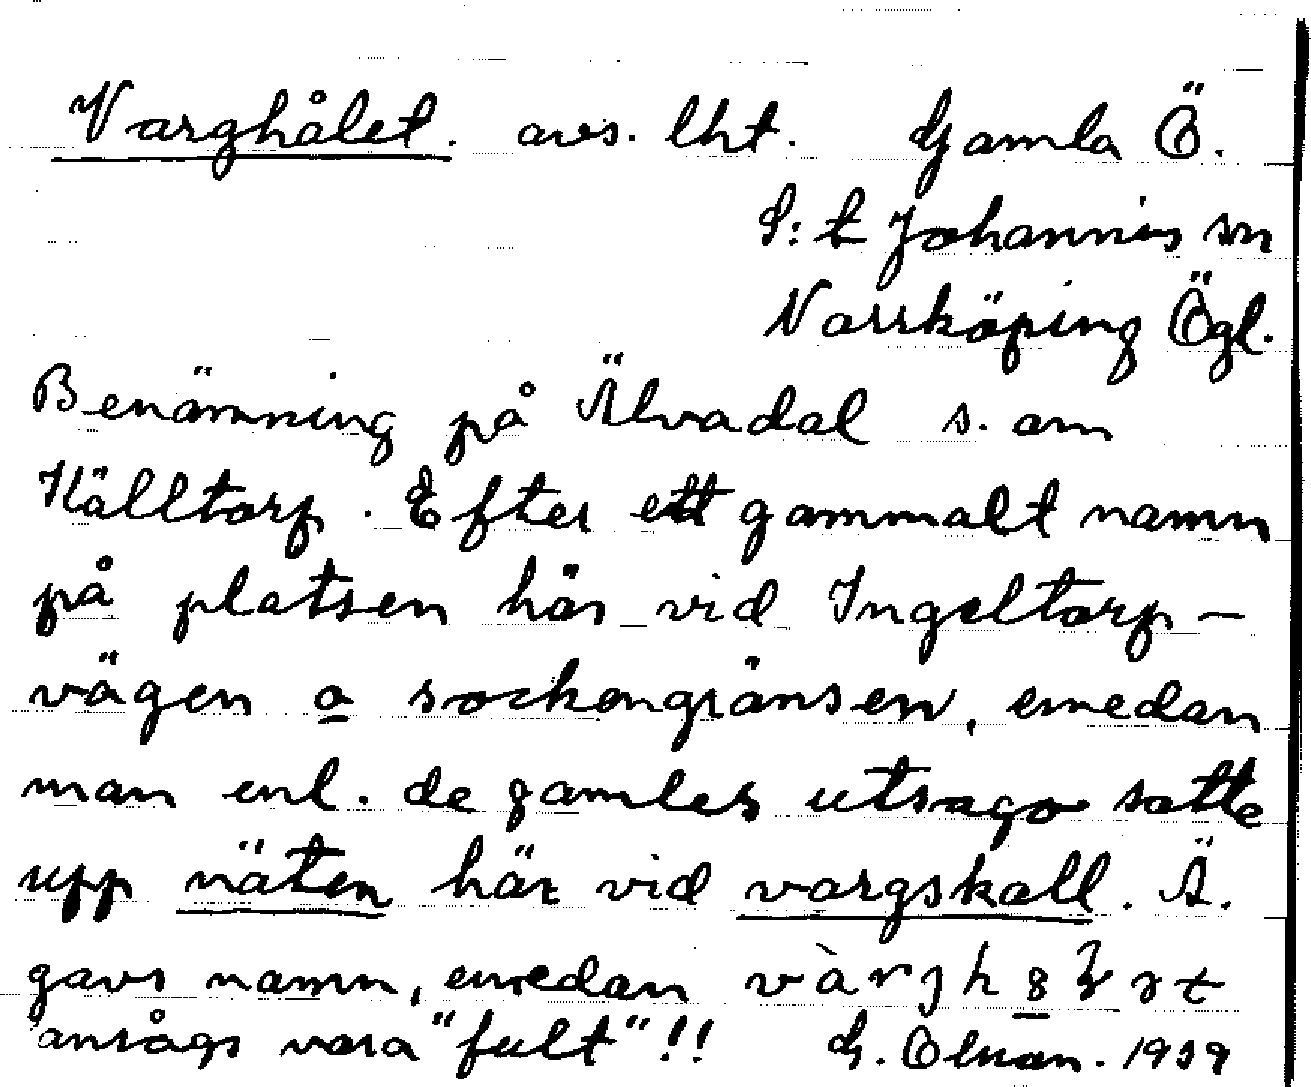 Varghålet. avs. lht. Gamla Ö.
S:t Johannis sn
Norrköping Ögl.
Benämning på Älvadal s. om
Källtorp. Efter ett gammalt namn
på platsen här vid Ingeltorp-
vägen o sockengränsen, emedan
man enl. de gamles utsago satte
upp näten här vid vargskall. Ä.
gavs namn, emedan
ansågs vara "fult"!! G. Olman. 1929